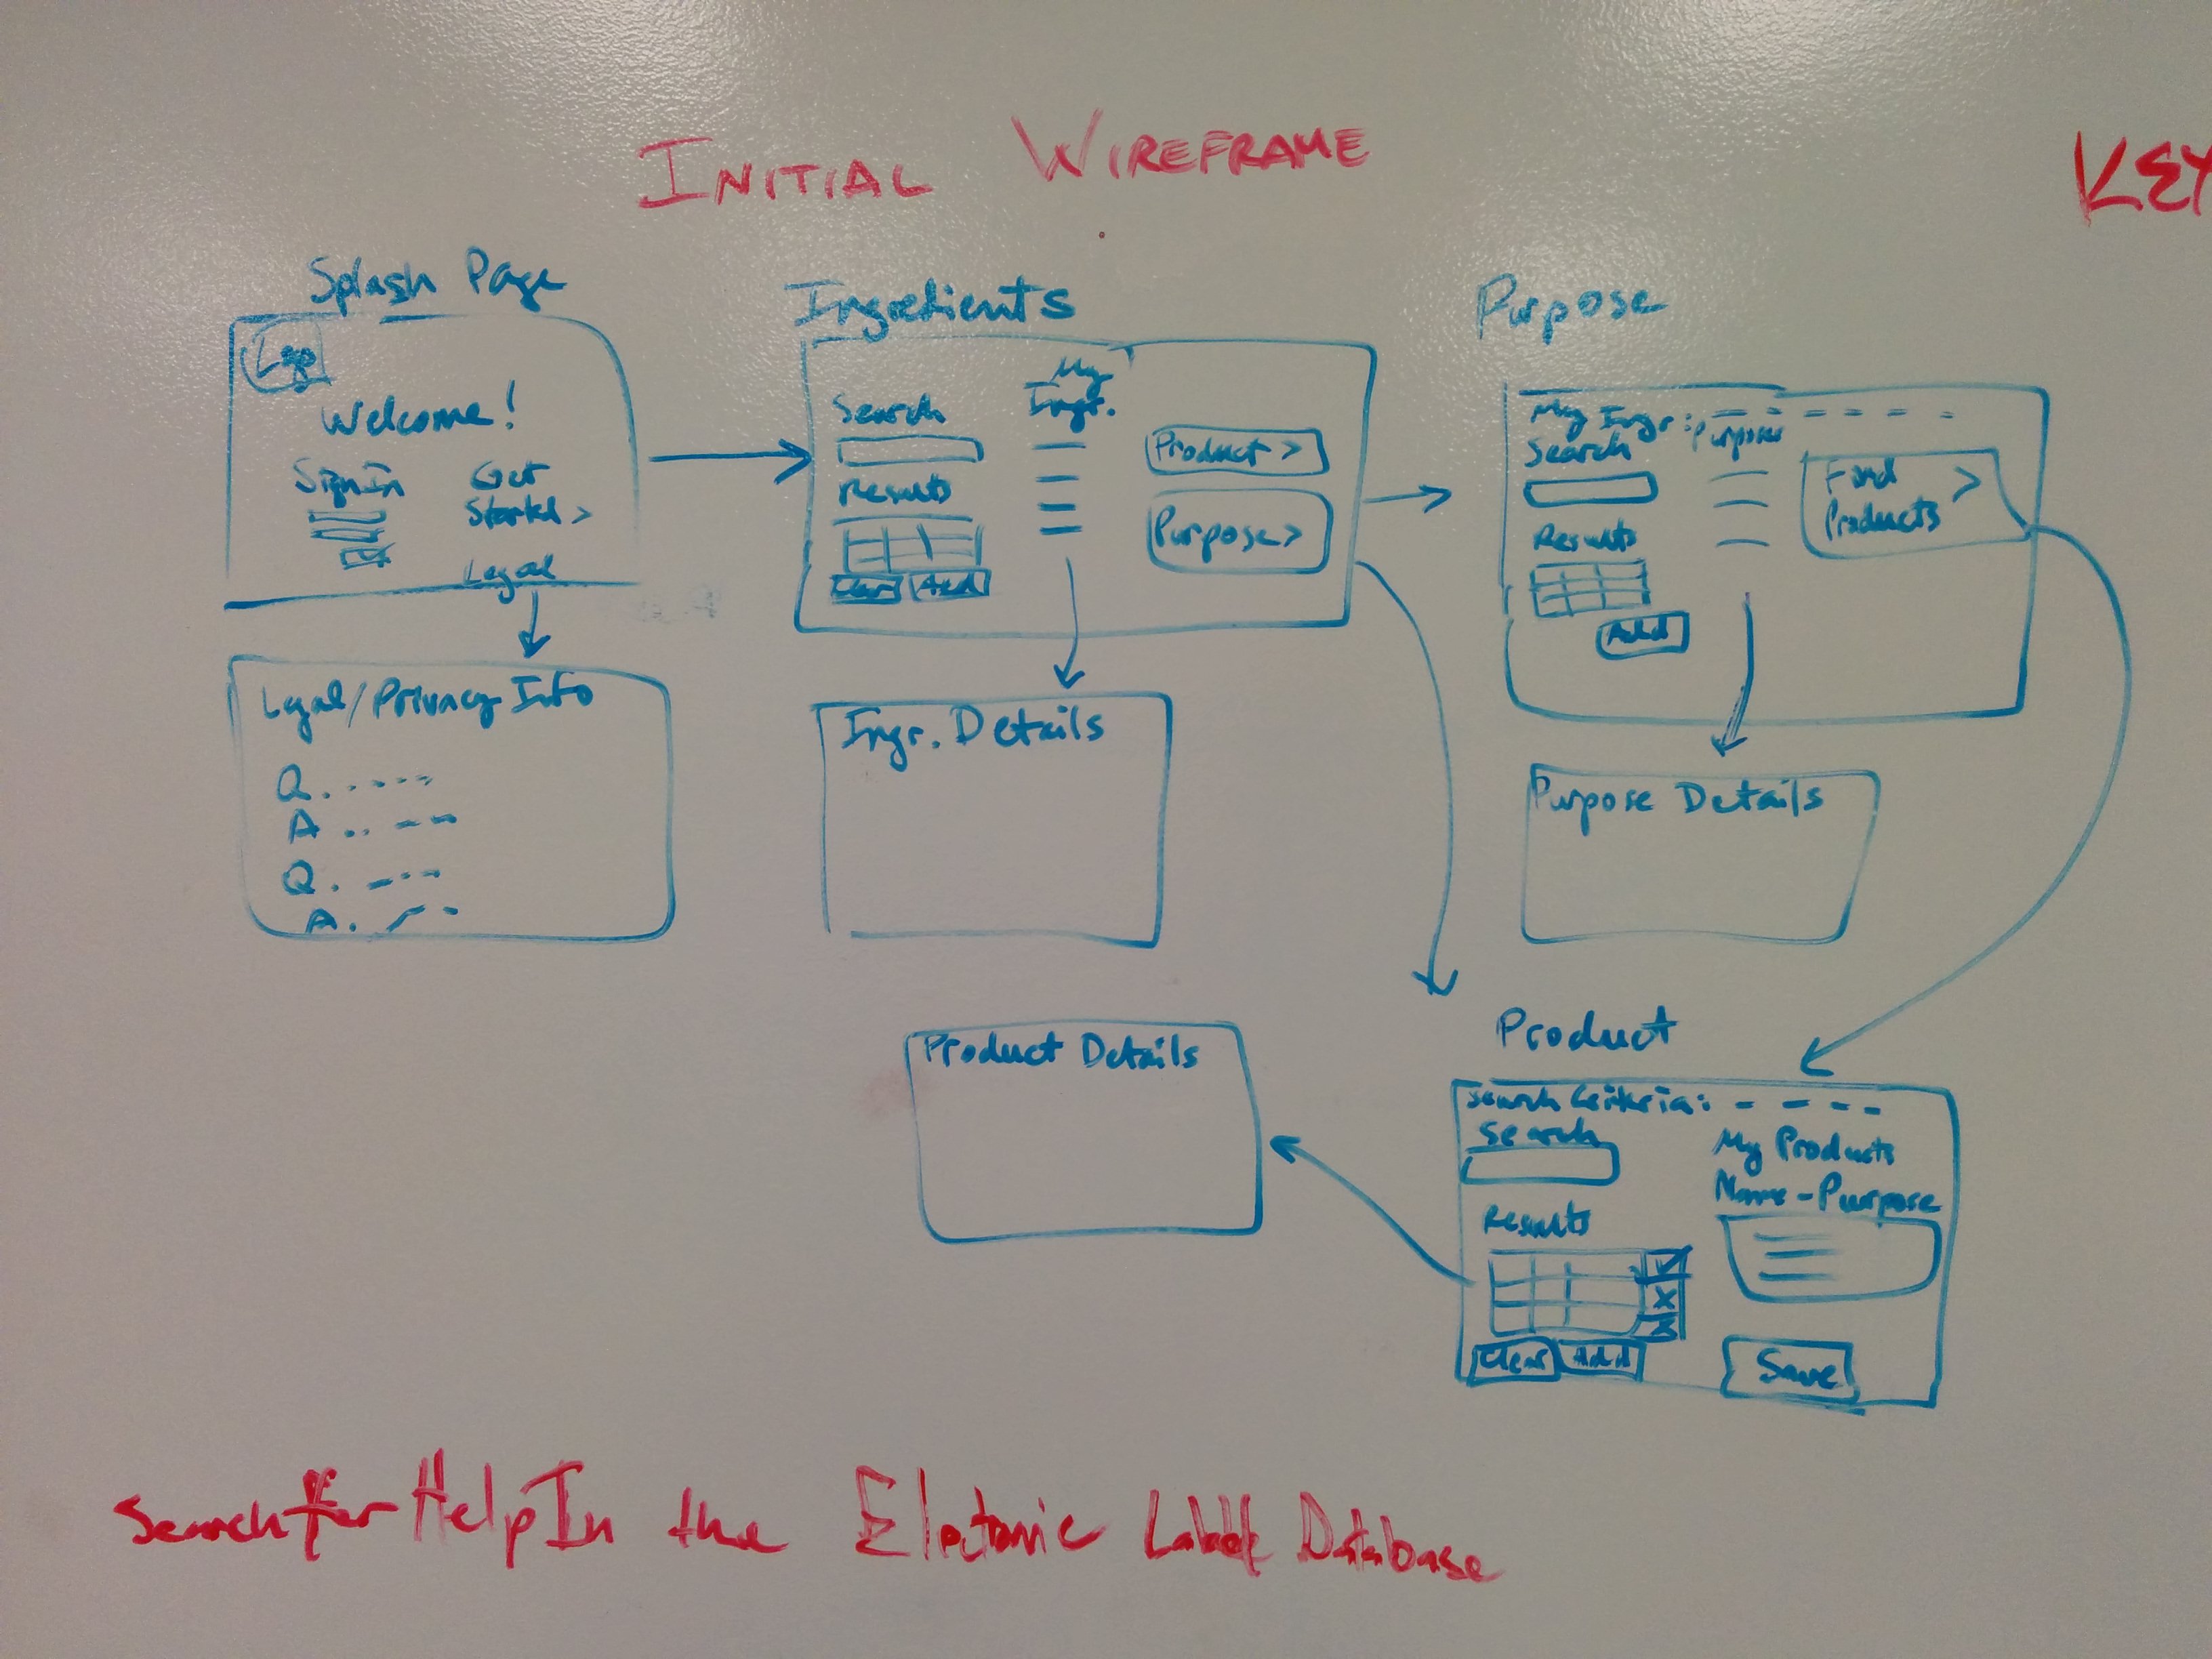 INITIAL WIREFRAME
KEY
Splash Page
Logo
Welcome!
Sign in
Get
Started >
Legal
Legal/Privacy Info
Q.
A
Q.
A.
Ingredients
Search
Results
Clear Add
My
Ingr.
Product >
Purpose >
Ingr. Details
Purpose
My Ingr:
Search
Purposes
Results
Add
Find >
Products
Purpose Details
Product Details
Product
Search Criteria:
Search
Results
Clear Add
My Products
Name - Purpose
Save
Search for Help In the Electonic Label Database